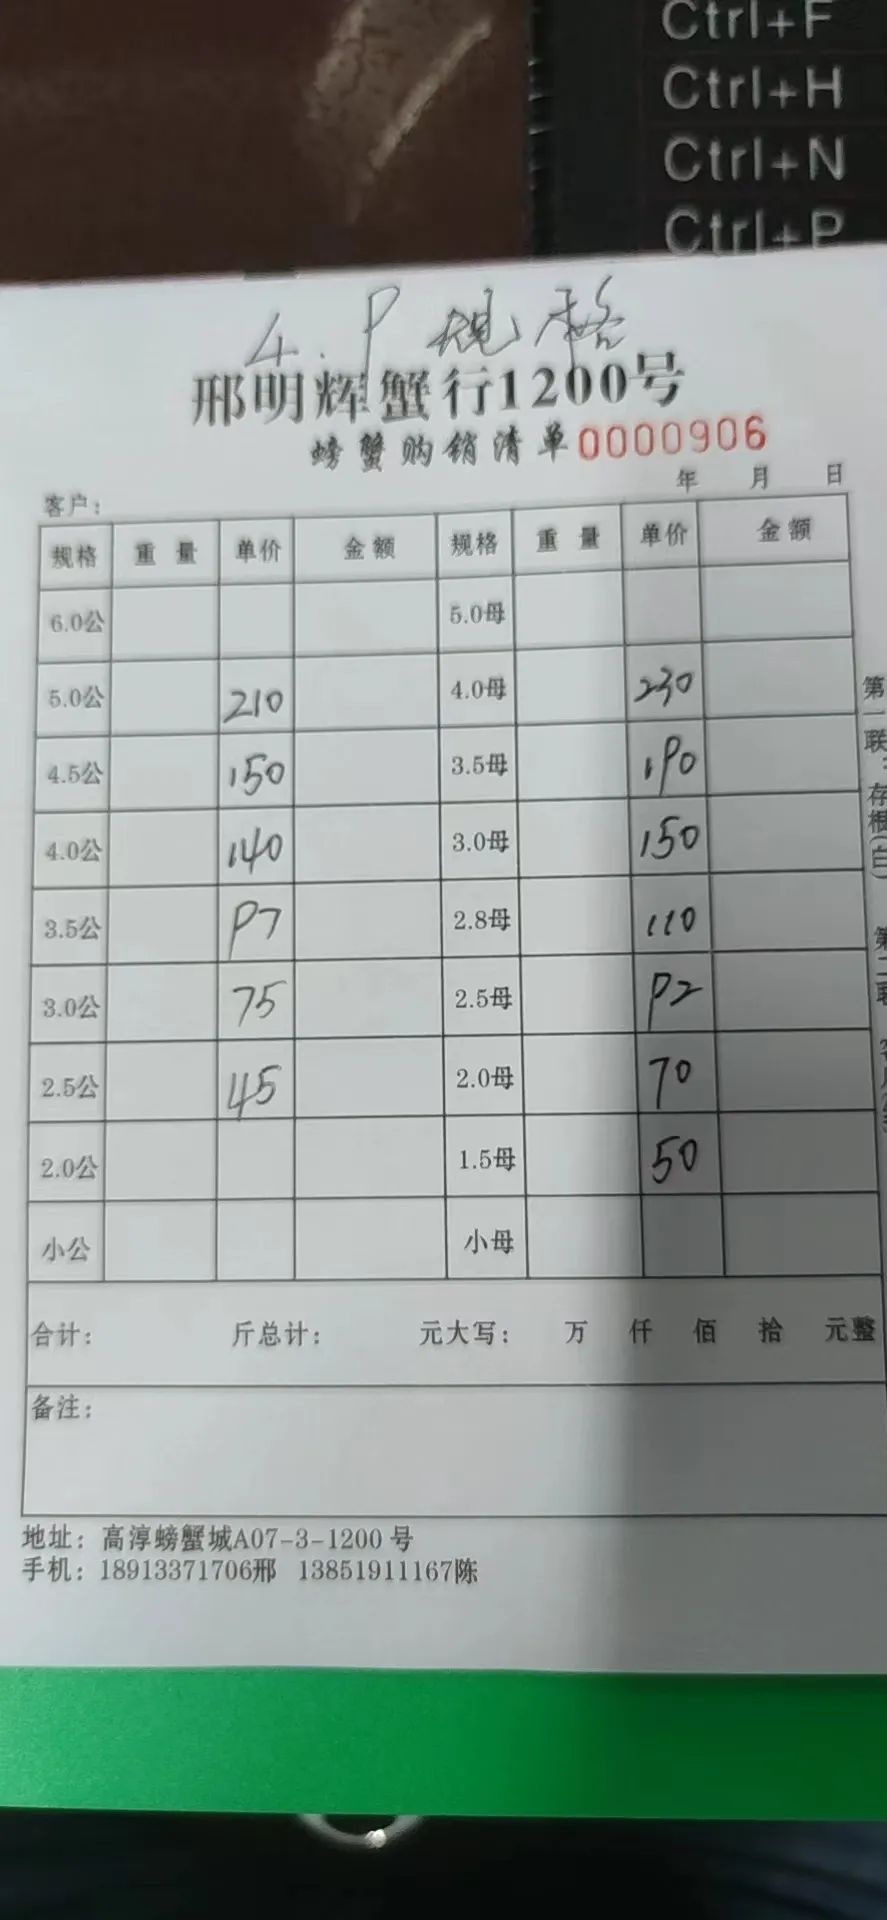 Ctrl+F
Ctrl+H
Ctrl+N
Ctrl+P
4.9规格
邢明辉蟹行1200号
螃蟹购销清单0000906
年 月 日
客户：
规格 重量 单价 金额 规格 重量 单价 金额
6.0公 5.0母
5.0公 210 4.0母 230
4.5公 150 3.5母 190
4.0公 140 3.0母 150
3.5公 97 2.8母 110
3.0公 75 2.5母 92
2.5公 45 2.0母 70
2.0公 1.5母 50
小公 小母
合计： 斤总计： 元大写： 万 仟 佰 拾 元整
备注：
地址：高淳螃蟹城A07-3-1200号
手机：18913371706邢 13851911167陈
第一联：存根(白)